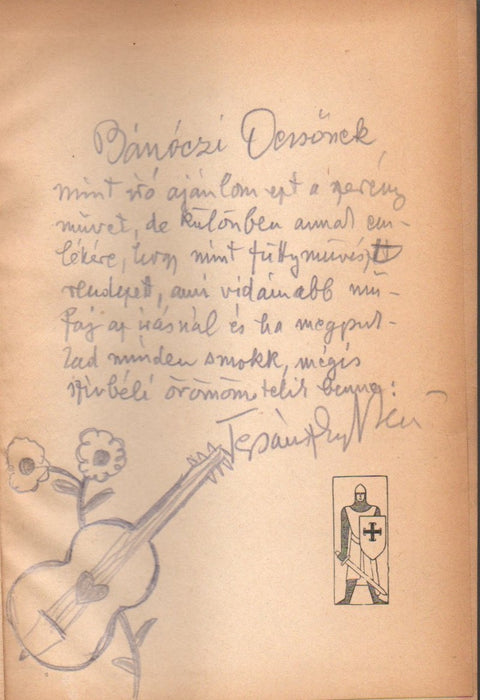 Bánóczi Dezsőnek
mint író ajánlom ezt a szerény
művet, de különben annak em-
lékére, hogy mint füttyművészt
rendezett, ami vidámabb mű-
faj az írásnál és ha megpuk-
kad minden smokk, mégis
szívbéli örömöm telik benne:
Tersánszky J Jenő